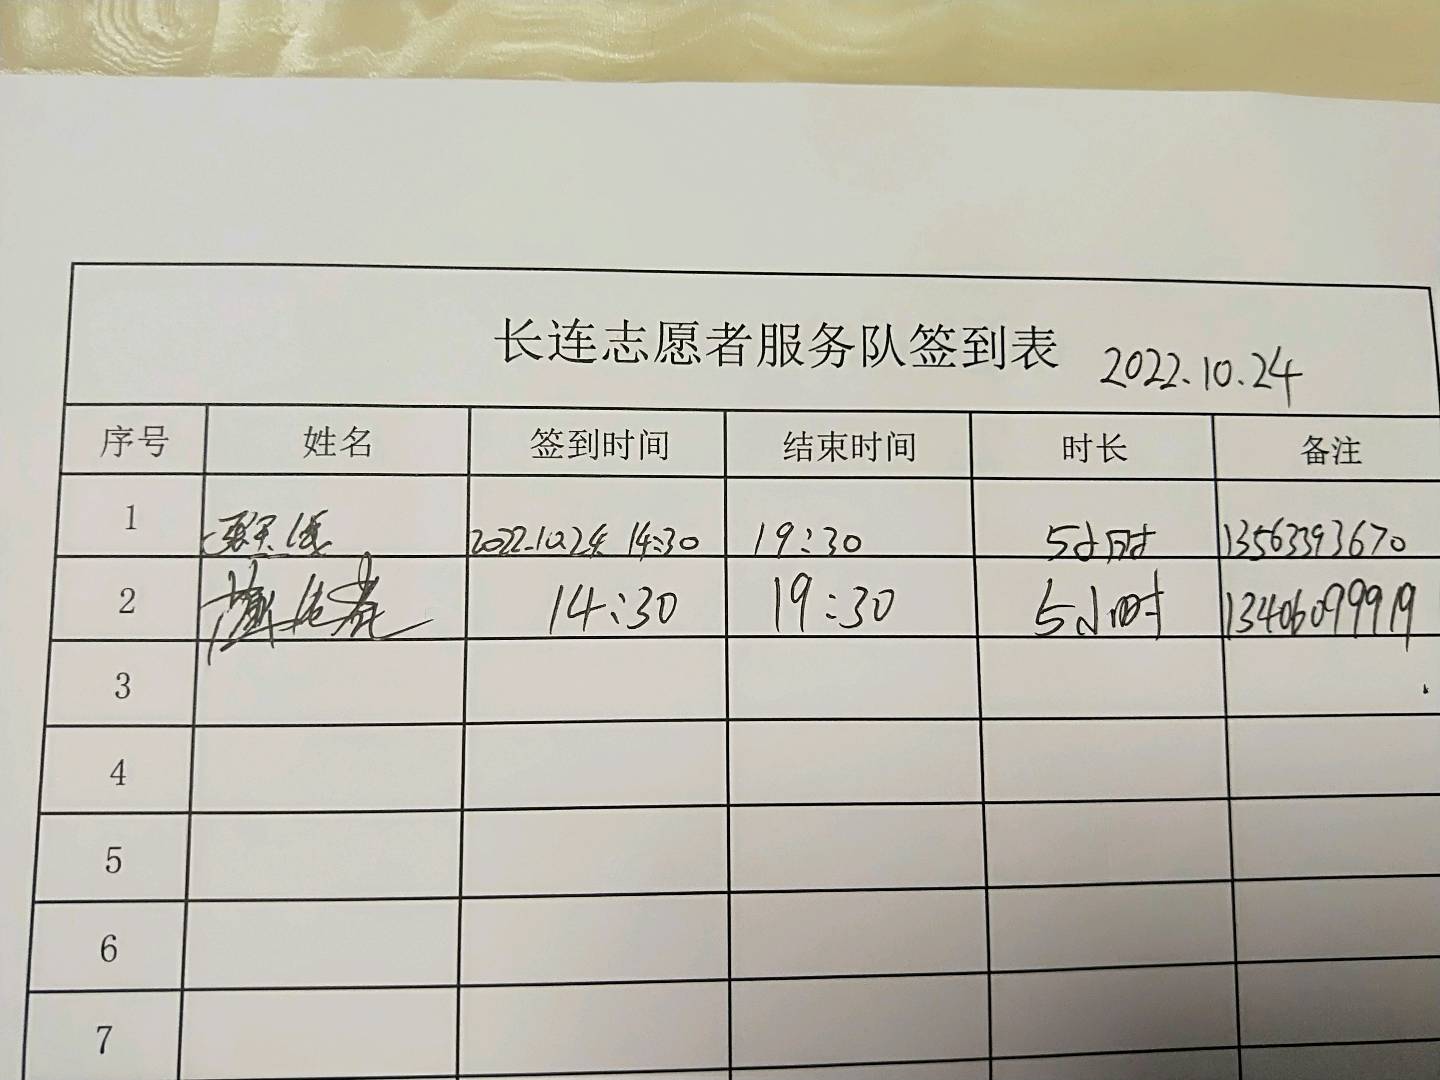 长连志愿者服务队签到表 2022.10.24
序号 姓名 签到时间 结束时间 时长 备注
1 2022.10.24 14:30 19:30 5小时 13563393670
2 14:30 19:30 5小时 13406099919
3
4
5
6
7